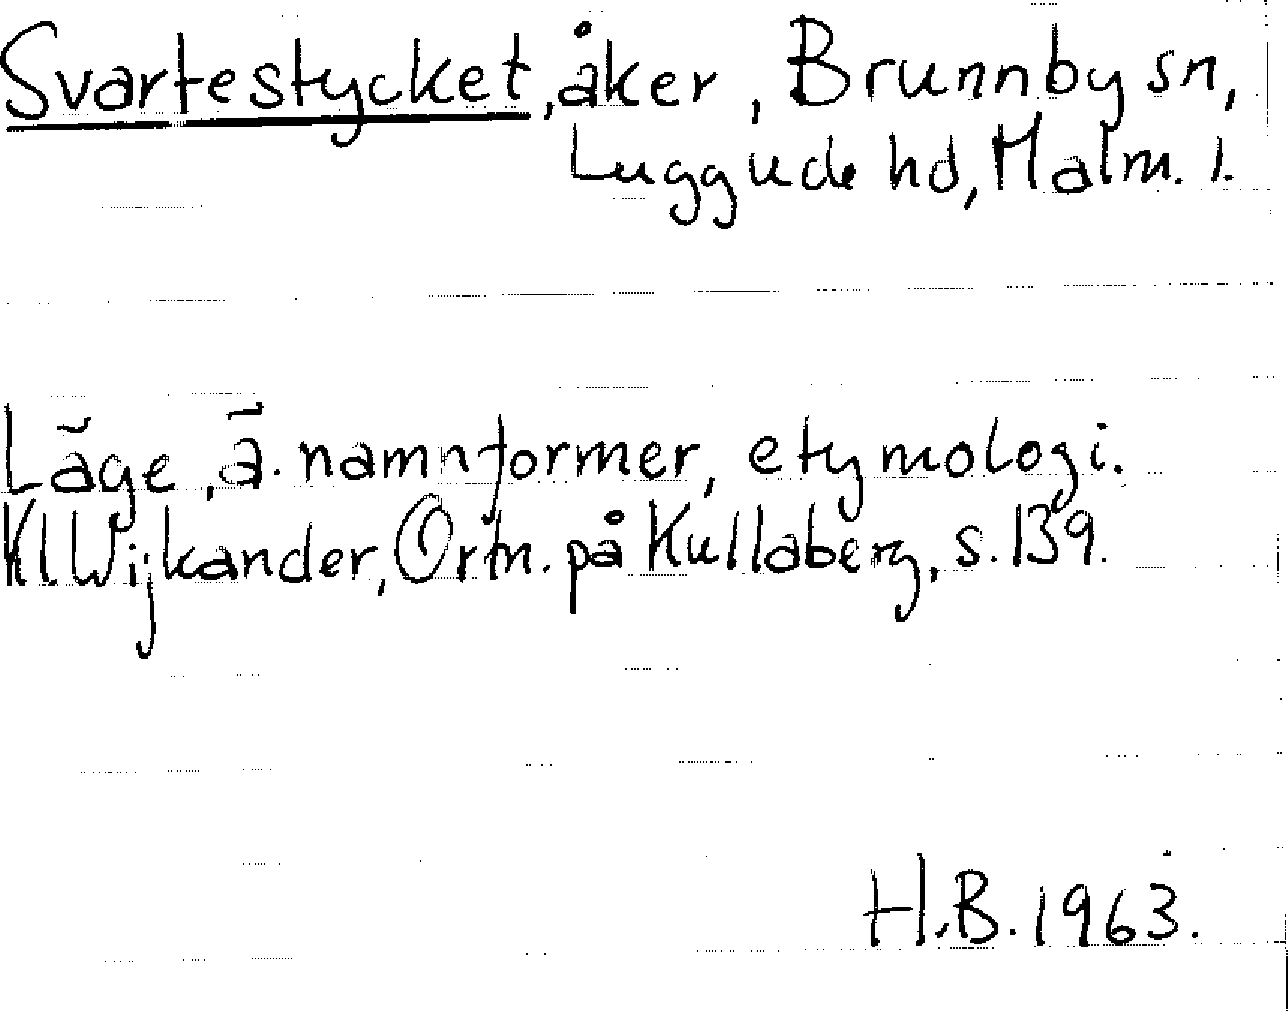 Svartestycket, åker, Brunnby sn,
Luggude hd, Malm. l.
Läge, ä. namnformer, etymologi.
Kl. Wijkander, Ortn. på Kullaberg, s. 139.
H.B. 1963.